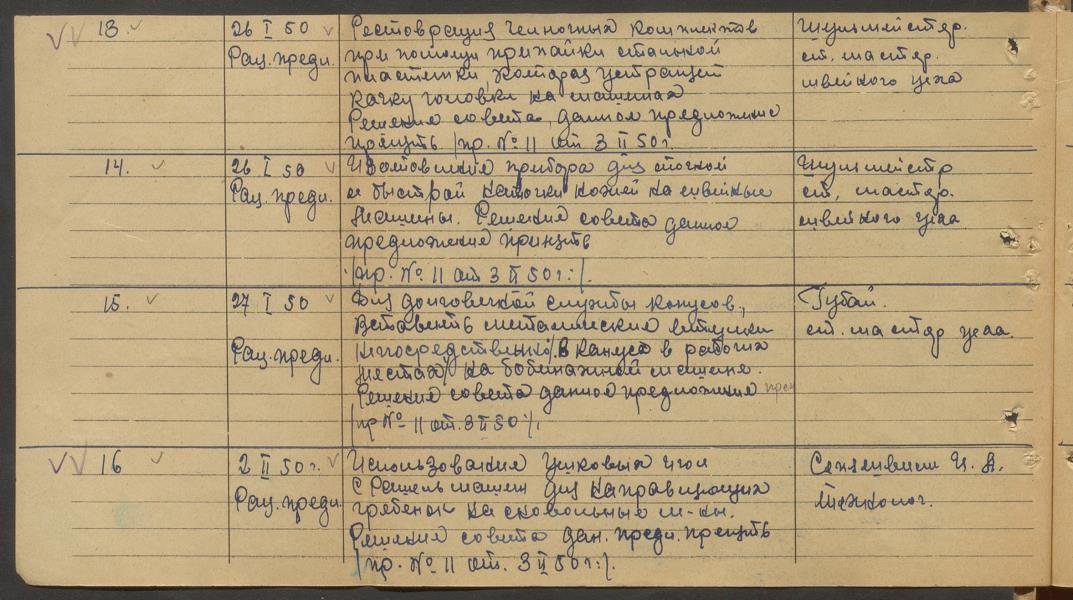 13. 26 I 50 Реставрация челночных комплектов Шульмейстер.
Рац. предл. при помощи припайки стальной ст. мастер.
пластинки, которая устраняет швейного цеха
качку головки на машинах
Решение совета, данное предложение
принять /пр. № 11 от 3 II 50 г.
14. 26 I 50 Изготовление прибора для точной Шульмейстр
Рац. предл. и быстрой наточки ножей на швейные ст. мастер.
машины. Решение совета данное швейного цеха
предложение принять
/пр. № 11 от 3 II 50 г:/.
15. 27 I 50 Для долговечной службы конусов, Губай.
вставить металлические втулки ст. мастер цеха.
Рац. предл. непосредственно/в конуса в рабочих
местах/ на бобинажной машине.
Решение совета данное предложение прен
/пр № 11 от. 3 II 50:/.
16 2 II 50 г. Использование ушковых игл И. А.
Рац. предл. с рашель машин для направляющих технолог.
гребенок на основальные м-ны.
Решение совета дан. предл. принять
/пр. № 11 от. 3 II 50 г:/.